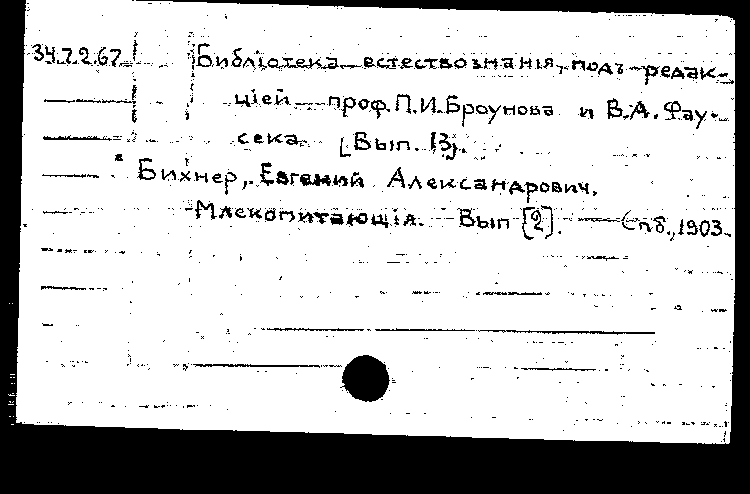 34.7.2.67 Библіотека естествознанія, подъ редак-
ціей проф. П.И. Броунова и В.А. Фау-
сека. [Вып. 13].
Бихнер, Евгений Александрович.
Млекопитающія. Вып [2]. — Спб., 1903.